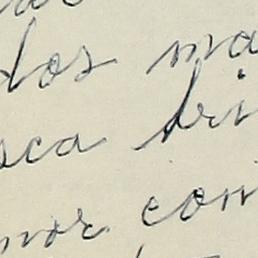 los ma
sca bri
mor con